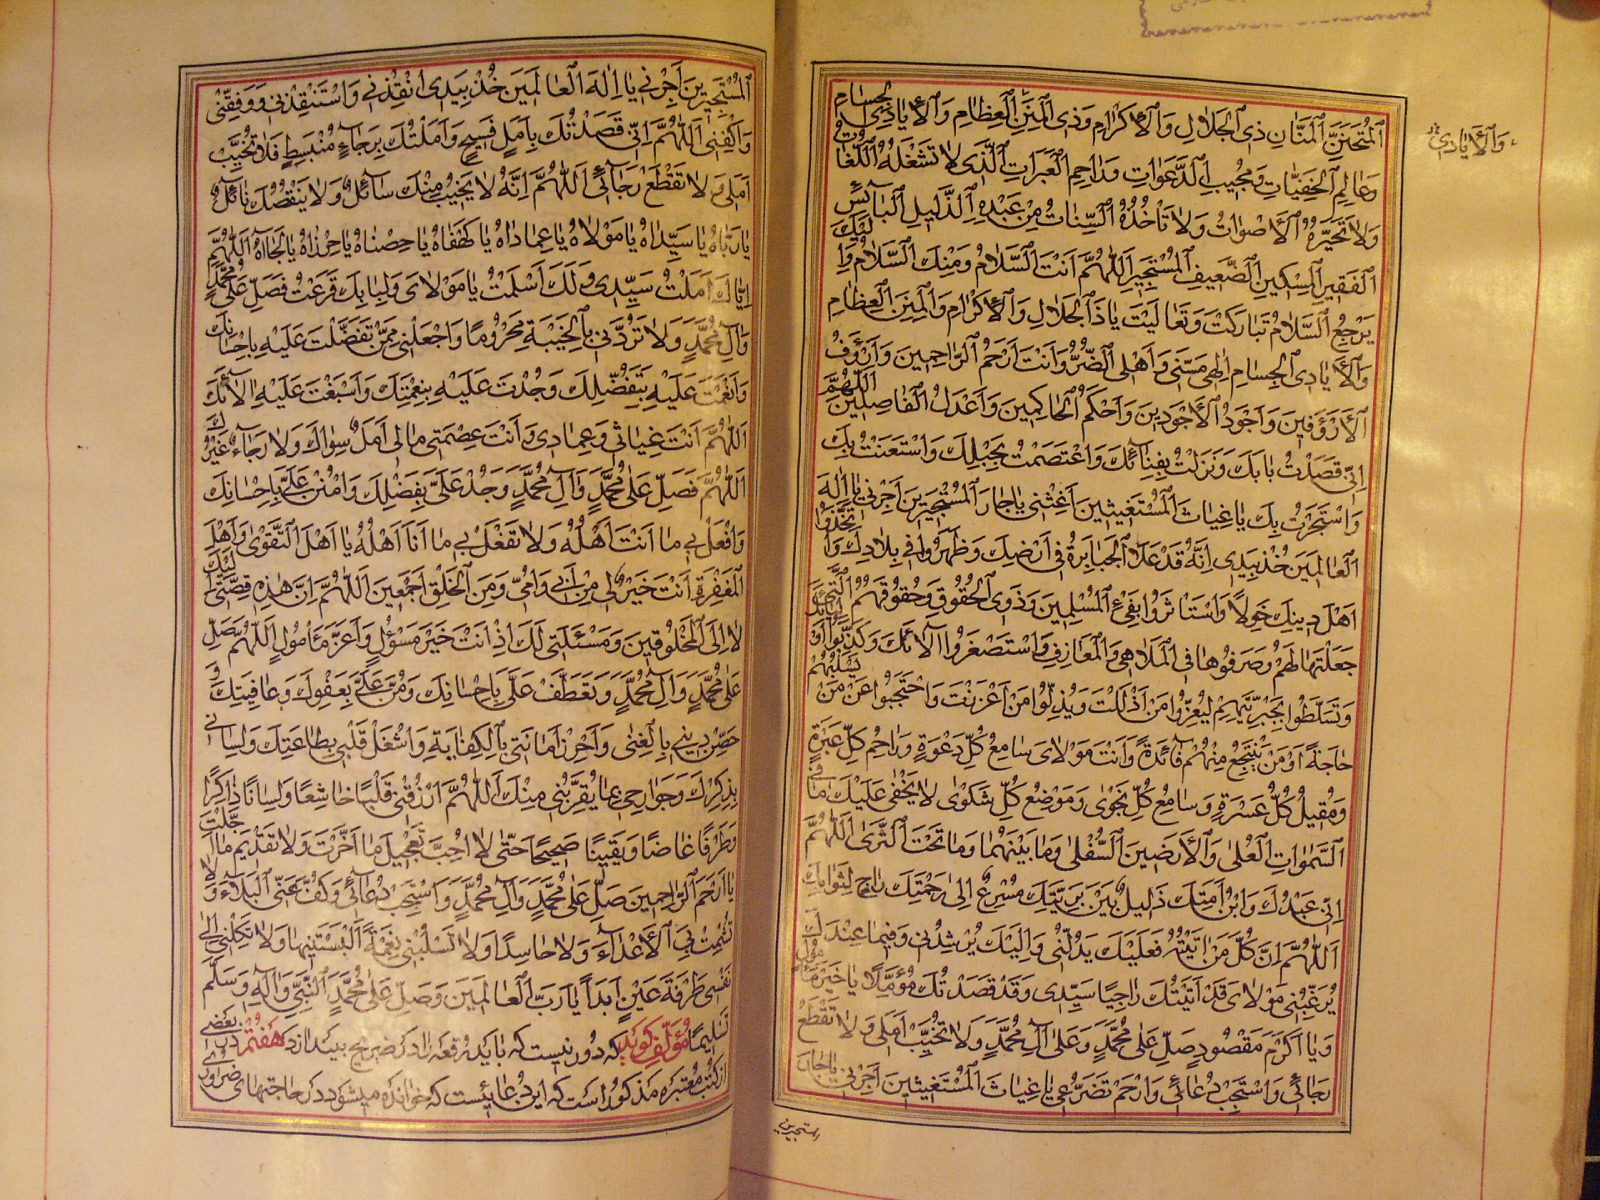 الْمُتَحَنِّنِ الْمَنَّانِ ذِي الْجَلَالِ وَالْأِكْرَامِ وَذِي الْمِنَنِ الْعِظَامِ وَالْأَيَادِي الْجِسَامِ
وَعَالِمِ الْخَفِيَّاتِ وَمُجِيبِ الدَّعَوَاتِ وَرَاحِمِ الْعَبَرَاتِ الَّذِي لَا تَشْغَلُهُ اللُّغَاتُ
وَلَا تُحَيِّرُهُ الْأَصْوَاتُ وَلَا تَأْخُذُهُ السِّنَاتُ مِنْ عَبْدِهِ الذَّلِيلِ الْبَائِسِ
الْفَقِيرِ الْمِسْكِينِ الضَّعِيفِ الْمُسْتَجِيرِ اَللّٰهُمَّ اَنْتَ السَّلَامُ وَمِنْكَ السَّلَامُ وَاِلَيْكَ
يَرْجِعُ السَّلَامُ تَبَارَكْتَ وَتَعَالَيْتَ يَا ذَا الْجَلَالِ وَالْأِكْرَامِ وَالْمِنَنِ الْعِظَامِ
وَالْأَيَادِي الْجِسَامِ اِلٰهِي مَسَّنِي وَاَهْلِيَ الضُّرُّ وَاَنْتَ اَرْحَمُ الرَّاحِمِينَ وَاَرْؤَفُ
الْأَرْؤَفِينَ وَاَجْوَدُ الْأَجْوَدِينَ وَاَحْكَمُ الْحَاكِمِينَ وَاَعْدَلُ الْفَاصِلِينَ اَللّٰهُمَّ
اِنِّي قَصَدْتُ بَابَكَ وَنَزَلْتُ بِفِنَائِكَ وَاعْتَصَمْتُ بِحَبْلِكَ وَاسْتَعَنْتُ بِكَ
وَاسْتَجَرْتُ بِكَ يَا غِيَاثَ الْمُسْتَغِيثِينَ اَغِثْنِي يَا جَارَ الْمُسْتَجِيرِينَ اَجِرْنِي يَا اِلٰهَ
الْعَالَمِينَ خُذْ بِيَدِي اِنَّهُ قَدْ عَلَا الْجَبَابِرَةُ فِي اَرْضِكَ وَظَهَرُوا فِي بِلَادِكَ وَاتَّخَذُوا
اَهْلَ دِينِكَ خَوَلًا وَاسْتَأْثَرُوا بِفَيْءِ الْمُسْلِمِينَ وَذَوِي الْحُقُوقِ حُقُوقَهُمُ الَّتِي
جَعَلْتَهَا لَهُمْ وَصَرَفُوهَا فِي الْمَلَاهِي وَالْمَعَازِفِ وَاسْتَصْغَرُوا آلَائَكَ وَكَذَّبُوا
وَتَسَلَّطُوا بِجَبْرِيَّتِهِمْ لِيُعِزُّوا مَنْ اَذْلَلْتَ وَيُذِلُّوا مَنْ اَعْزَزْتَ وَاحْتَجَبُوا عَنْ مَنْ
حَاجَةً اَوْ مَنْ يَنْتَجِعُ مِنْهُمْ فَائِدَةً وَاَنْتَ مَوْلَايَ سَامِعُ كُلِّ دَعْوَةٍ وَرَاحِمُ كُلِّ عَبْرَةٍ
وَمُقِيلُ كُلِّ عَسْرَةٍ وَسَامِعُ كُلِّ نَجْوٰى وَمَوْضِعُ كُلِّ شَكْوٰى لَا يَخْفٰى عَلَيْكَ مَا فِي
السَّمٰوَاتِ الْعُلٰى وَالْأَرَضِينَ السُّفْلٰى وَمَا بَيْنَهُمَا وَمَا تَحْتَ الثَّرٰى اَللّٰهُمَّ
اِنِّي عَبْدُكَ وَابْنُ اَمَتِكَ ذَلِيلٌ بَيْنَ بَرِيَّتِكَ مُسْرِعٌ اِلٰى رَحْمَتِكَ رَاجٍ لِثَوَابِكَ
اَللّٰهُمَّ اِنَّ كُلَّ مَنْ اَتَيْتُهُ فَعَلَيْكَ يَدُلُّنِي وَاِلَيْكَ يُرْشِدُنِي وَفِيمَا عِنْدَكَ
يُرَغِّبُنِي مَوْلَايَ قَدْ اَتَيْتُكَ رَاجِيًا سَيِّدِي وَقَدْ قَصَدْتُكَ مُؤَمِّلًا يَا خَيْرَ مَأْمُولٍ
وَيَا اَكْرَمَ مَقْصُودٍ صَلِّ عَلٰى مُحَمَّدٍ وَعَلٰى آلِ مُحَمَّدٍ وَلَا تُخَيِّبْ اَمَلِي وَلَا تَقْطَعْ
رَجَائِي وَاسْتَجِبْ دُعَائِي وَارْحَمْ تَضَرُّعِي يَا غِيَاثَ الْمُسْتَغِيثِينَ اَجِرْنِي يَا جَارَ
المستجيرين
وَالْأَيَادِي
الْمُسْتَجِيرِينَ اَجِرْنِي يَا اِلٰهَ الْعَالَمِينَ خُذْ بِيَدِي اَنْقِذْنِي وَاسْتَنْقِذْنِي وَوَفِّقْنِي
وَاكْفِنِي اَللّٰهُمَّ اِنِّي قَصَدْتُكَ بِاَمَلٍ فَسِيحٍ وَاَمَّلْتُكَ بِرَجَاءٍ مُنْبَسِطٍ فَلَا تُخَيِّبْ
اَمَلِي وَلَا تَقْطَعْ رَجَائِي اَللّٰهُمَّ اِنَّهُ لَا يَخِيبُ مِنْكَ سَائِلٌ وَلَا يَنْقُصُكَ نَائِلٌ
يَا رَبَّاهُ يَا سَيِّدَاهُ يَا مَوْلَاهُ يَا عِمَادَاهُ يَا كَهْفَاهُ يَا حِصْنَاهُ يَا حِرْزَاهُ يَا لَجَاَاهُ اَللّٰهُمَّ
اِيَّاكَ اَمَّلْتُ سَيِّدِي وَلَكَ اَسْلَمْتُ يَا مَوْلَايَ وَلِبَابِكَ قَرَعْتُ فَصَلِّ عَلٰى مُحَمَّدٍ
وَآلِ مُحَمَّدٍ وَلَا تَرُدَّنِي بِالْخَيْبَةِ مَحْرُومًا وَاجْعَلْنِي مِمَّنْ تَفَضَّلْتَ عَلَيْهِ بِاِحْسَانِكَ
وَاَنْعَمْتَ عَلَيْهِ بِتَفَضُّلِكَ وَجُدْتَ عَلَيْهِ بِنِعْمَتِكَ وَاَسْبَغْتَ عَلَيْهِ آلَائَكَ
اَللّٰهُمَّ اَنْتَ غِيَاثِي وَعِمَادِي وَاَنْتَ عِصْمَتِي مَا لِي اَمَلٌ سِوَاكَ وَلَا رَجَاءٌ غَيْرُكَ
اَللّٰهُمَّ فَصَلِّ عَلٰى مُحَمَّدٍ وَآلِ مُحَمَّدٍ وَجُدْ عَلَيَّ بِفَضْلِكَ وَامْنُنْ عَلَيَّ بِاِحْسَانِكَ
وَافْعَلْ بِي مَا اَنْتَ اَهْلُهُ وَلَا تَفْعَلْ بِي مَا اَنَا اَهْلُهُ يَا اَهْلَ التَّقْوٰى وَاَهْلَ
الْمَغْفِرَةِ اَنْتَ خَيْرٌ لِي مِنْ اَبِي وَاُمِّي وَمِنَ الْخَلْقِ اَجْمَعِينَ اَللّٰهُمَّ اِنَّ هٰذِهِ قِصَّتِي اِلَيْكَ
لَا اِلَى الْمَخْلُوقِينَ وَمَسْئَلَتِي لَكَ اِذْ اَنْتَ خَيْرُ مَسْؤُلٍ وَاَعَزُّ مَأْمُولٍ اَللّٰهُمَّ صَلِّ
عَلٰى مُحَمَّدٍ وَآلِ مُحَمَّدٍ وَتَعَطَّفْ عَلَيَّ بِاِحْسَانِكَ وَمُنَّ عَلَيَّ بِعَفْوِكَ وَعَافِيَتِكَ وَ
حَصِّنْ دِينِي بِالْغِنٰى وَاحْرِزْ اَمَانَتِي بِالْكِفَايَةِ وَاشْغَلْ قَلْبِي بِطَاعَتِكَ وَلِسَانِي
بِذِكْرِكَ وَجَوَارِحِي بِمَا يُقَرِّبُنِي مِنْكَ اَللّٰهُمَّ ارْزُقْنِي قَلْبًا خَاشِعًا وَلِسَانًا ذَاكِرًا
وَطَرْفًا غَاضًّا وَيَقِينًا صَحِيحًا حَتّٰى لَا اُحِبَّ تَعْجِيلَ مَا اَخَّرْتَ وَلَا تَقْدِيمَ مَا اَجَّلْتَ
يَا اَرْحَمَ الرَّاحِمِينَ صَلِّ عَلٰى مُحَمَّدٍ وَآلِ مُحَمَّدٍ وَاسْتَجِبْ دُعَائِي وَكُفَّ عَنِّي الْبَلَاءَ وَلَا
تُشْمِتْ بِيَ الْأَعْدَاءَ وَلَا حَاسِدًا وَلَا تَسْلُبْنِي نِعْمَةً اَلْبَسْتَنِيهَا وَلَا تَكِلْنِي اِلٰى
نَفْسِي طَرْفَةَ عَيْنٍ اَبَدًا يَا رَبَّ الْعَالَمِينَ وَصَلِّ عَلٰى مُحَمَّدٍ النَّبِيِّ وَآلِهِ وَسَلَّمَ
تَسْلِيمًا مُؤَلِّف كُويَد كه دور نيست كه بايد رقعه را در ضريح بيندازد هَفْتُم در بعضى
از كتب معتبره مذكور است كه اين دعائيست كه خوانده ميشود در حاجتهاى ضرورى